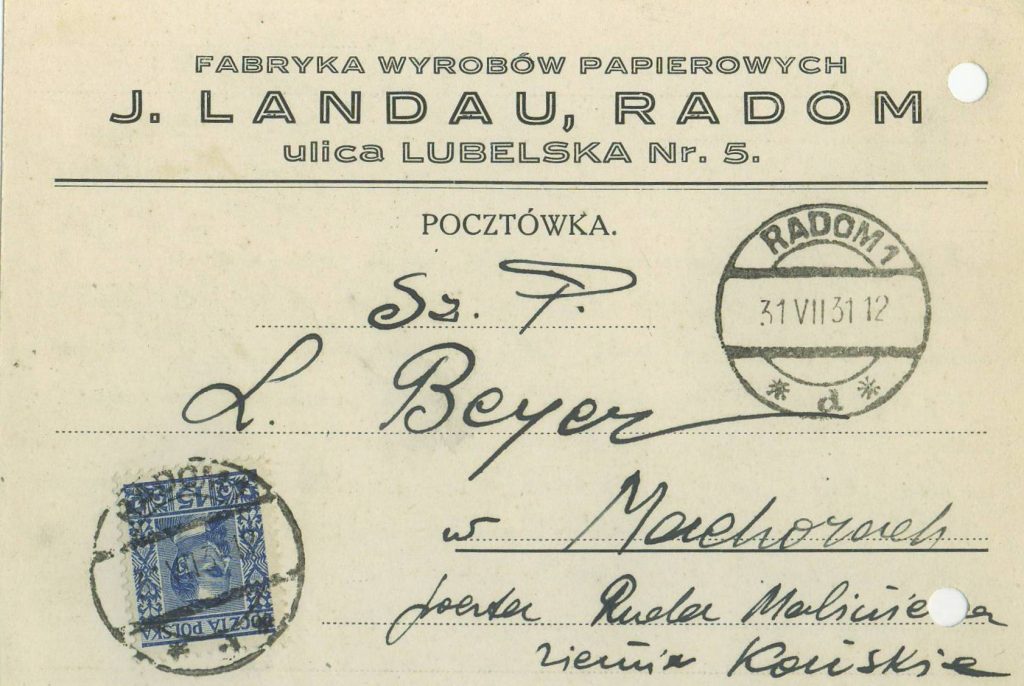 FABRYKA WYROBÓW PAPIEROWYCH
J. LANDAU, RADOM
ulica LUBELSKA Nr. 5.
POCZTÓWKA.
RADOM 1
31 VII 31 12
* d *
Sz. P.
L. Beyer
w Machorach
poczta Ruda Maliniecka
ziemia Końskie
15
POCZTA POLSKA